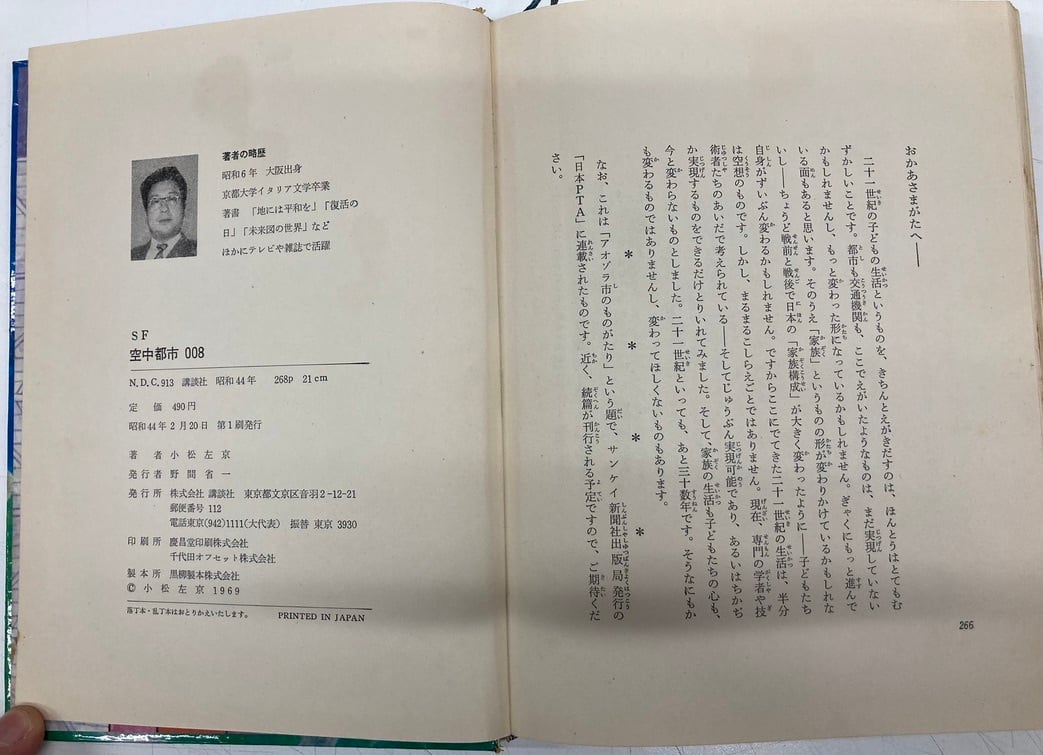 おかあさまがたへ――
二十一世紀の子どもの生活というものを、きちんとえがきだすのは、ほんとうはとてもむ
ずかしいことです。都市も交通機関も、ここでえがいたようなものは、まだ実現していない
かもしれませんし、もっと変わった形になっているかもしれません。ぎゃくにもっと進んで
いる面もあると思います。そのうえ「家族」というものの形が変わりかけているかもしれな
いし――ちょうど戦前と戦後で日本の「家族構成」が大きく変わったように――子どもたち
自身がずいぶん変わるかもしれません。ですからここにでてきた二十一世紀の生活は、半分
は空想のものです。しかし、まるまるこしらえごとではありません。現在、専門の学者や技
術者たちのあいだで考えられている――そしてじゅうぶん実現可能であり、あるいはちかぢ
か実現するものをできるだけとりいれてみました。そして、家族の生活も子どもたちの心も、
今と変わらないものとしました。二十一世紀といっても、あと三十数年です。そうなにもか
も変わるものではありませんし、変わってほしくないものもあります。
* * * *
なお、これは「アオゾラ市のものがたり」という題で、サンケイ新聞社出版局発行の
「日本PTA」に連載されたものです。近く、続篇が刊行される予定ですので、ご期待くだ
さい。
266
著者の略歴
昭和6年 大阪出身
京都大学イタリア文学卒業
著書 「地には平和を」「復活の
日」「未来図の世界」など
ほかにテレビや雑誌で活躍
SF
空中都市 008
N.D.C.913 講談社 昭和44年 268p 21cm
定 価 490円
昭和44年2月20日 第1刷発行
著 者 小松左京
発行者 野間省一
発行所 株式会社 講談社 東京都文京区音羽2-12-21
郵便番号 112
電話東京(942)1111(大代表) 振替 東京 3930
印刷所 慶昌堂印刷株式会社
千代田オフセット株式会社
製本所 黒柳製本株式会社
© 小松左京 1969
落丁本・乱丁本はおとりかえいたします。 PRINTED IN JAPAN